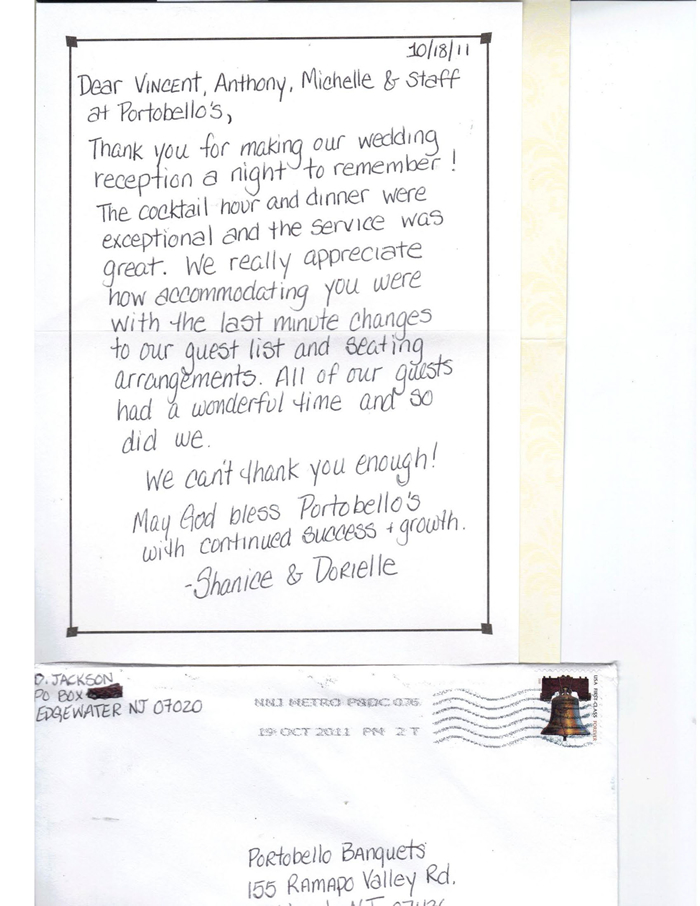 10/18/11
Dear Vincent, Anthony, Michelle & Staff
at Portobello's,
Thank you for making our wedding
reception a night to remember!
The cocktail hour and dinner were
exceptional and the service was
great. We really appreciate
how accommodating you were
with the last minute changes
to our guest list and seating
arrangements. All of our guests
had a wonderful time and so
did we.
We can't thank you enough!
May God bless Portobello's
with continued success + growth.
-Shanice & Dorielle
D. JACKSON
PO BOX
EDGEWATER NJ 07020
NNJ METRO P&DC 076
19 OCT 2011 PM 2 T
USA FIRST-CLASS FOREVER
Portobello Banquets
155 Ramapo Valley Rd.